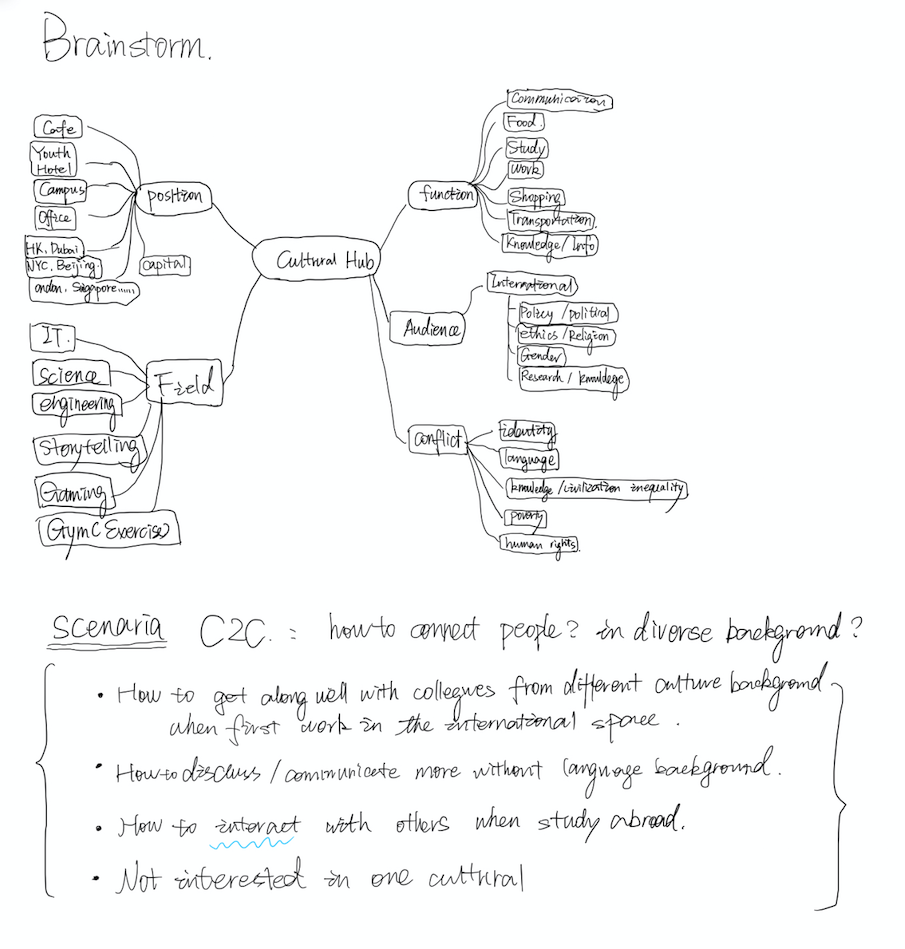 Brainstorm.
Cafe
Youth
Hotel
Campus
Office
HK. Dubai
NYC. Beijing.
ondon. Singapore......
capital
position
IT.
science
engineering
Storytelling
Gaming
Gym (Exercise)
Field
Cultural Hub
function
Communication
Food.
Study
Work
Shopping
Transportation.
Knowledge / Info
Audience
International
Policy / political
ethics / Religion
Gender
Research / knowldege
conflict
identity
language
knowledge / civilization inequality
poverty
human rights.
scenaria C2C. : how to connect people? in diverse background?
• How to get along well with collegues from different culture background
when first work in the international space.
• How to discuss / communicate more without language background.
• How to interact with others when study abroad.
• Not interested in one cultural